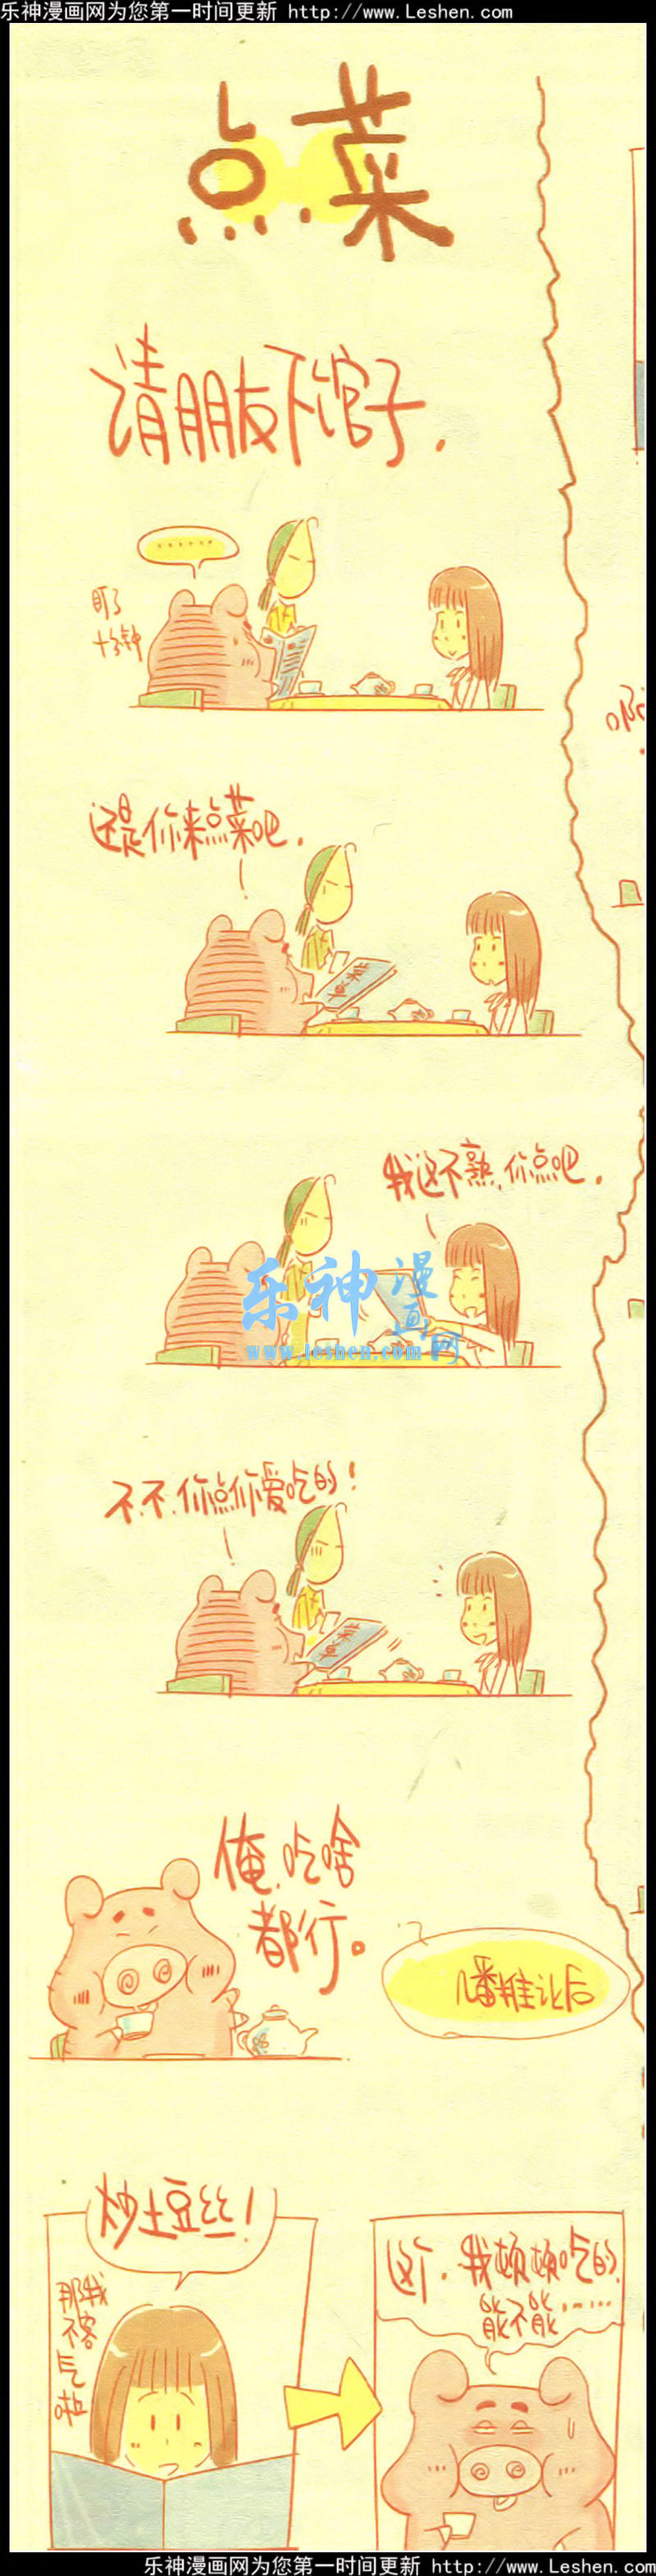 乐神漫画网为您第一时间更新 http://www.Leshen.com
点菜
请朋友下馆子.
......
盯了
十分钟
还是你来点菜吧.
我这不熟,你点吧.
乐神漫画网
www.leshen.com
不.不.你点你爱吃的!
俺.吃啥
都行。
一番推让后
炒土豆丝!
那我
不客
气
啦
这个.我顿顿吃的.
能不能......
乐神漫画网为您第一时间更新 http://www.Leshen.com